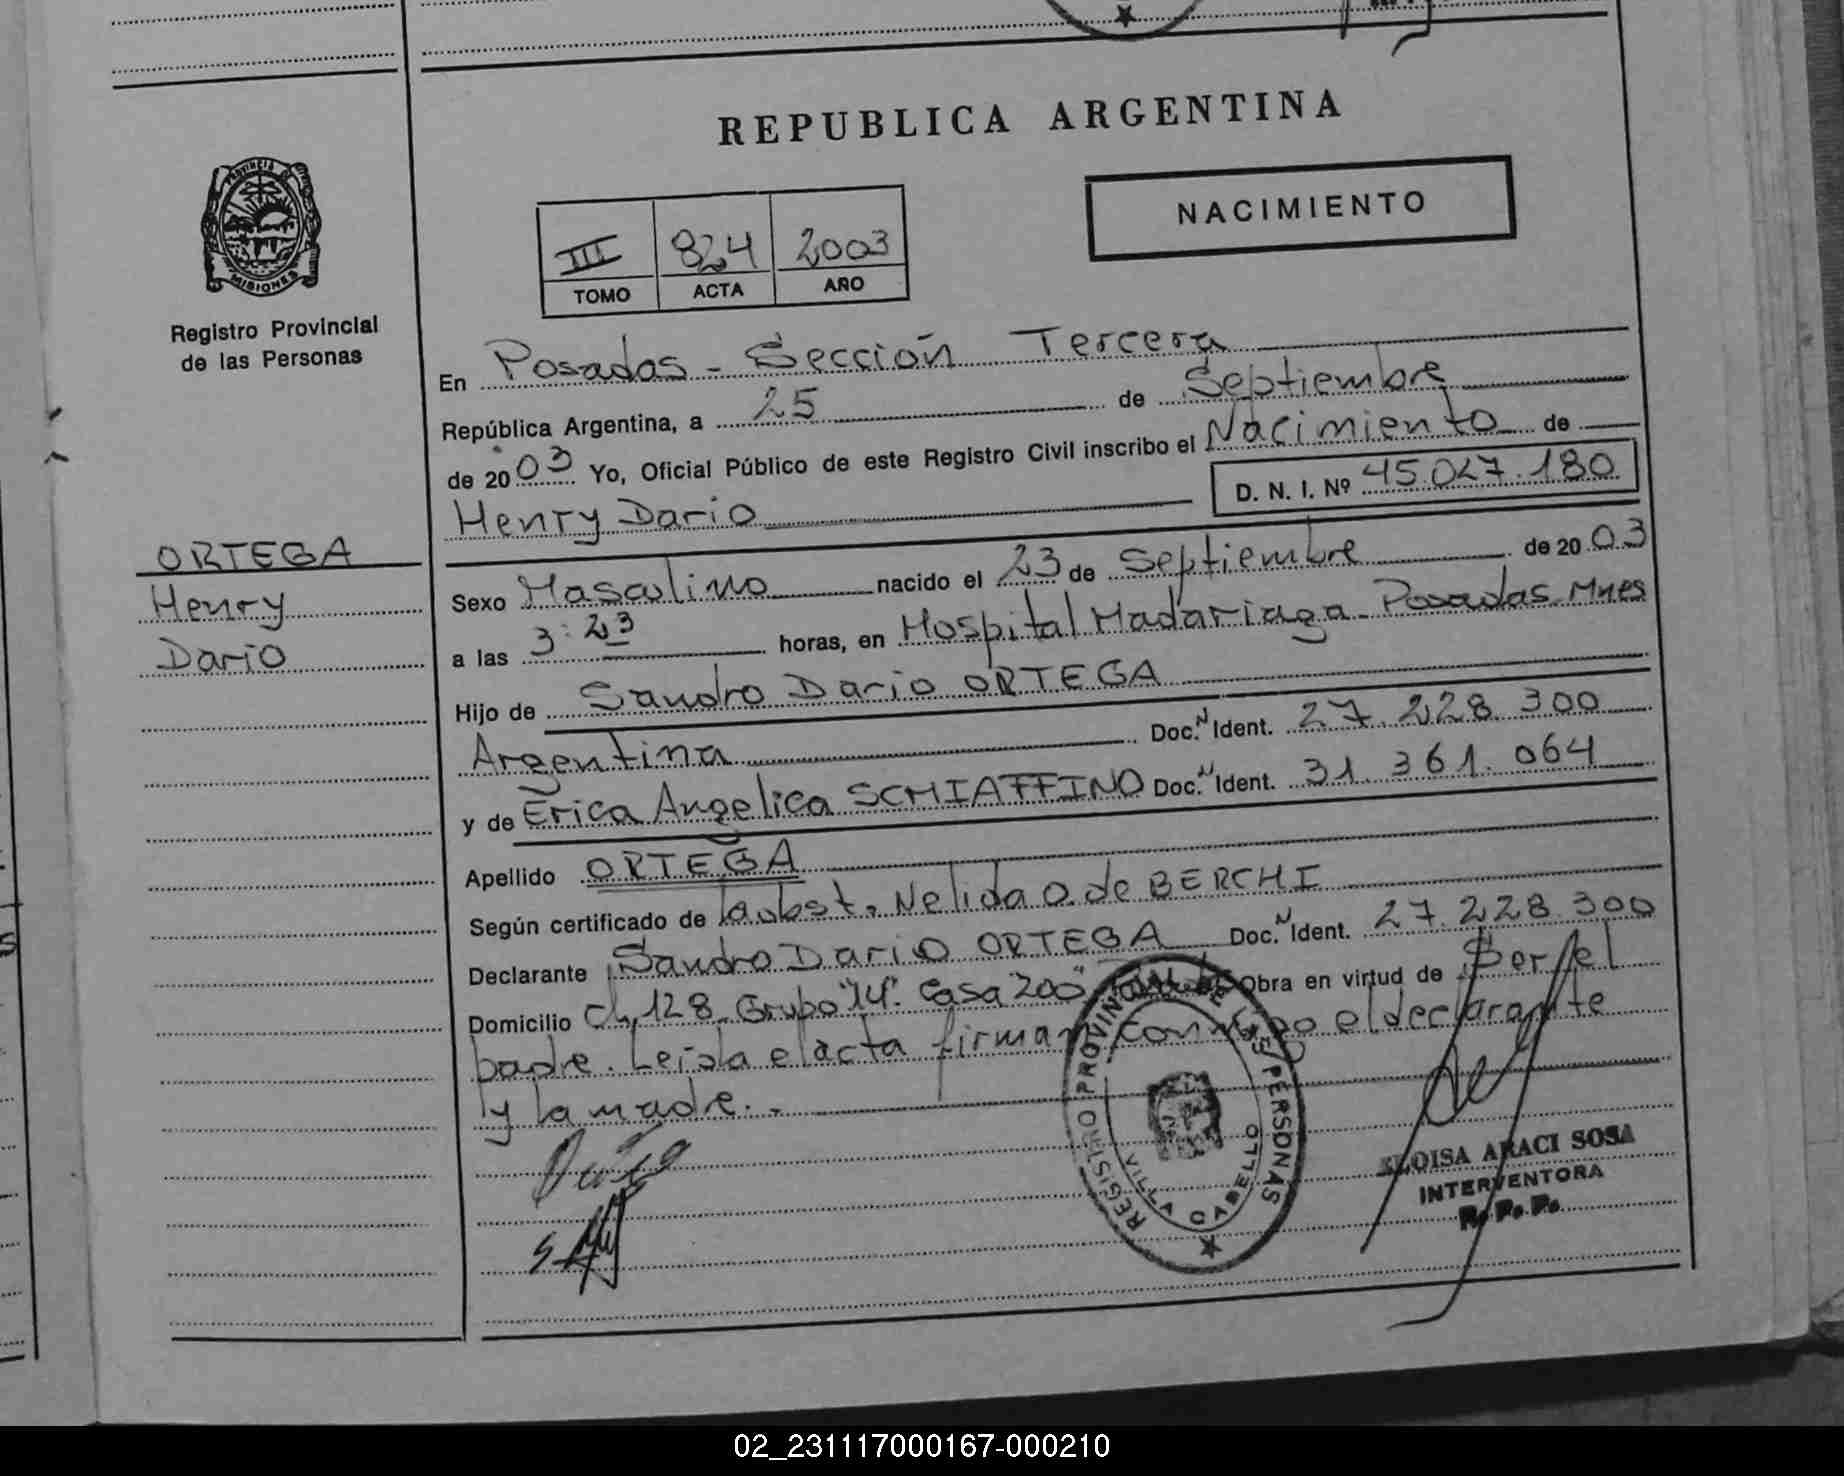 REPUBLICA ARGENTINA
NACIMIENTO
III 824 2003
TOMO ACTA AÑO
PROVINCIA DE
MISIONES
Registro Provincial
de las Personas
ORTEGA
Henry
Dario
En Posadas - Sección Tercera
República Argentina, a 25 de Septiembre
de 2003 Yo, Oficial Público de este Registro Civil inscribo el Nacimiento de
Henry Dario D. N. I. Nº 45.047.180
Sexo Masculino nacido el 23 de Septiembre de 2003
a las 3:23 horas, en Hospital Madariaga - Posadas Mnes
Hijo de Sandro Dario ORTEGA
Argentina Doc. N Ident. 27.228.300
y de Erica Angelica SCHIAFFINO Doc. N Ident. 31.361.064
Apellido ORTEGA
Según certificado de la obst. Nelida O. de BERCHI
Declarante Sandro Dario ORTEGA Doc. N Ident. 27.228.300
Domicilio Ch. 128 Grupo "14" Casa 200 Obra en virtud de Ser el
padre. Leida el acta firman conmigo el declarante
y la madre.
REGISTRO PROVINCIAL DE LAS PERSONAS
VILLA CABELLO
ELOISA ARACI SOSA
INTERVENTORA
R. P. P.
02_231117000167-000210